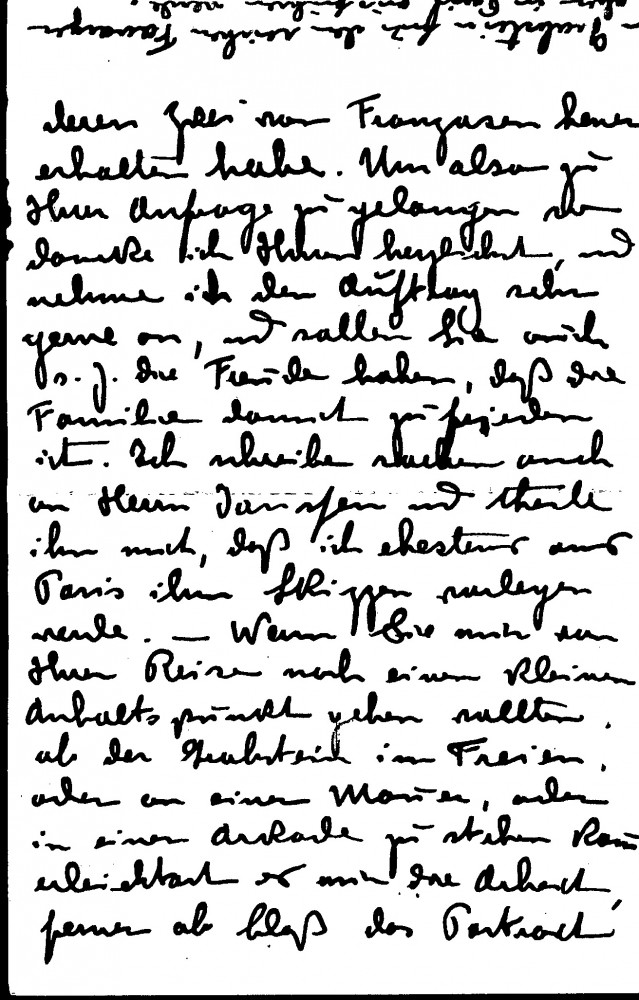 Grabstein für den reichen Fabrikanten
deren zwei von Franzosen heuer
erhalten habe. Um also zu
Ihrer Anfrage zu gelangen so
danke ich Ihnen herzlichst, und
nehme ich den Auftrag sehr
gerne an, und sollen Sie auch
s. Z. die Freude haben, daß die
Familie damit zufrieden
ist. Ich schreibe soeben auch
an Herrn Janssen und theile
ihm mit, daß ich ehestens aus
Paris ihm Skizzen vorlegen
werde. — Wenn Sie mir von
Ihrer Reise noch einen kleinen
Anhaltspunkt geben wollten,
ob der Grabstein im Freien,
oder an einer Mauer, oder
in einer Arkade zu stehen kom
erleichtert es mir die Arbeit,
ferner ob bloß das Portrait